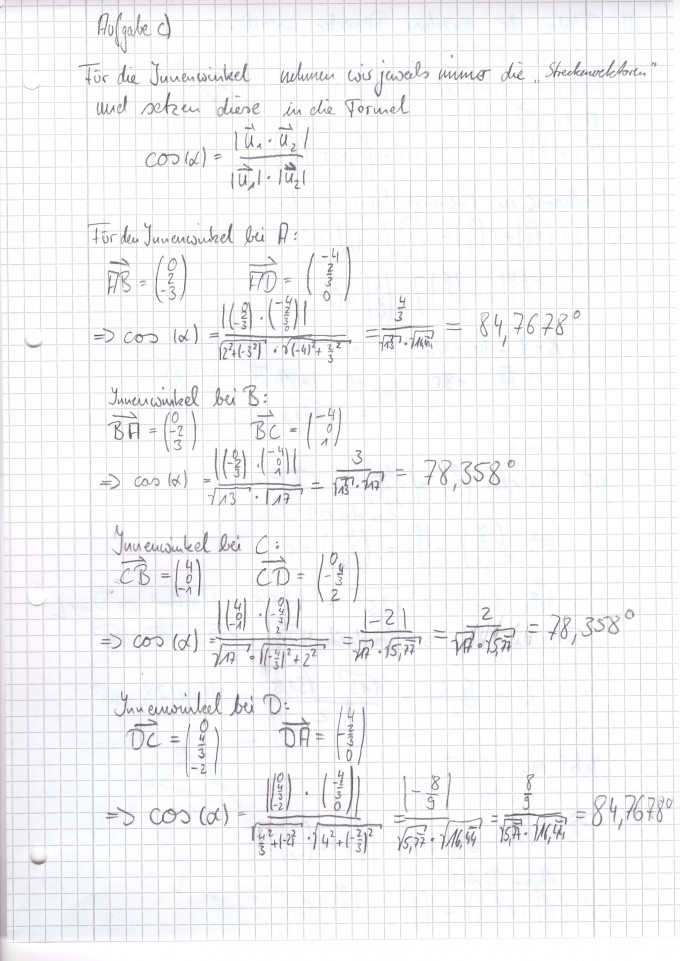 Aufgabe c)
Für die Innenwinkel nehmen wir jeweils immer die „Streckenvektoren"
und setzen diese in die Formel
cos(α) = |u⃗₁ · u⃗₂| / (|u⃗₁| · |u⃗₂|)
Für den Innenwinkel bei A:
AB⃗ = (0, 2, -3) AD⃗ = (-4, 2/3, 0)
=> cos (α) = |(0, 2, -3) · (-4, 2/3, 0)| / (√(2²+(-3²)) · √((-4)²+2/3²)) = (4/3) / (√13 · √16,44) = 84,7678°
Innenwinkel bei B:
BA⃗ = (0, -2, 3) BC⃗ = (-4, 0, 1)
=> cos (α) = |(0, -2, 3) · (-4, 0, 1)| / (√13 · √17) = 3 / (√13 · √17) = 78,358°
Innenwinkel bei C:
CB⃗ = (4, 0, -1) CD⃗ = (0, -4/3, 2)
=> cos (α) = |(4, 0, -1) · (0, -4/3, 2)| / (√17 · √((-4/3)²+2²)) = |-2| / (√17 · √5,77) = 2 / (√17 · √5,77) = 78,358°
Innenwinkel bei D:
DC⃗ = (0, 4/3, -2) DA⃗ = (4, -2/3, 0)
=> cos(α) = |(0, 4/3, -2) · (4, -2/3, 0)| / (√(4/3²+(-2)²) · √(4²+(-2/3)²)) = |-8/9| / (√5,77 · √16,44) = (8/9) / (√5,77 · √16,44) = 84,7678°